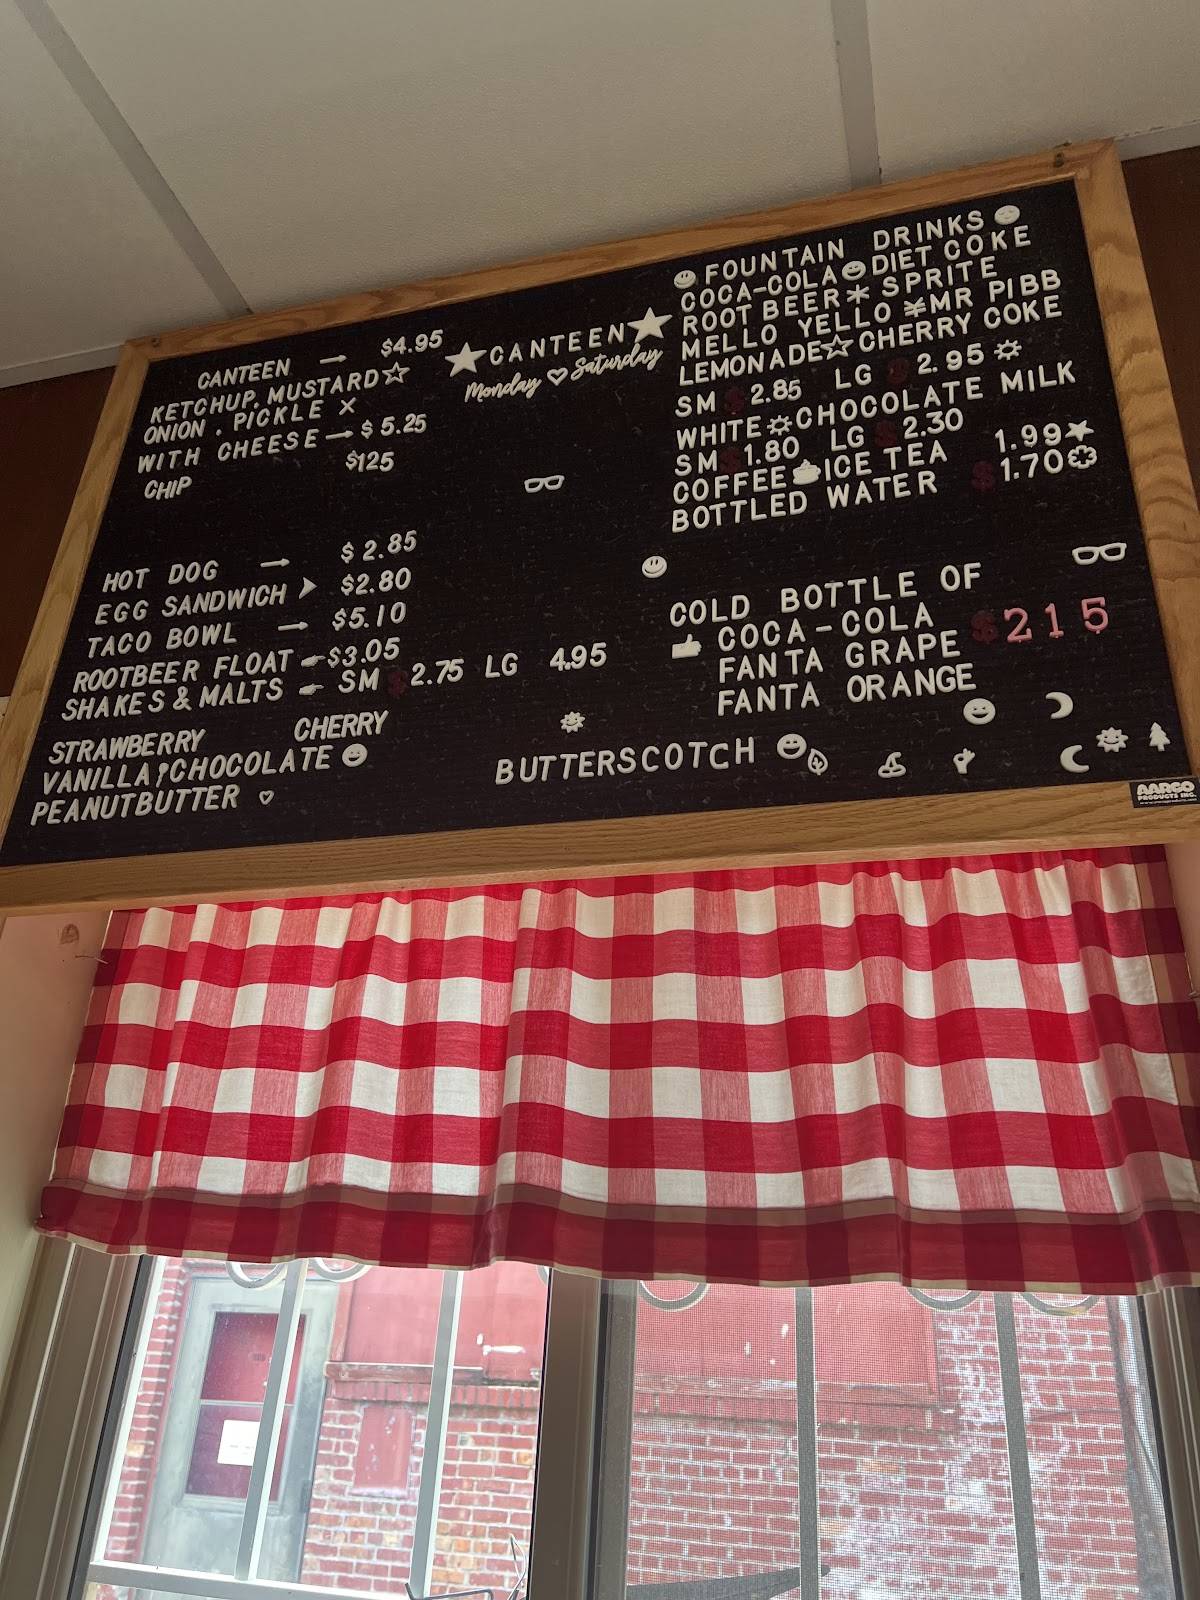 CANTEEN $4.95
KETCHUP, MUSTARD
ONION, PICKLE
WITH CHEESE $5.25
CHIP $125
HOT DOG $2.85
EGG SANDWICH $2.80
TACO BOWL $5.10
ROOTBEER FLOAT $3.05
SHAKES & MALTS SM $2.75 LG 4.95
STRAWBERRY CHERRY
VANILLA CHOCOLATE
PEANUTBUTTER
BUTTERSCOTCH
CANTEEN
Monday Saturday
FOUNTAIN DRINKS
COCA-COLA DIET COKE
ROOT BEER SPRITE
MELLO YELLO MR PIBB
LEMONADE CHERRY COKE
SM $2.85 LG $2.95
WHITE CHOCOLATE MILK
SM $1.80 LG $2.30
COFFEE ICE TEA 1.99
BOTTLED WATER $1.70
COLD BOTTLE OF
COCA-COLA $215
FANTA GRAPE
FANTA ORANGE
AARCO
PRODUCTS INC.